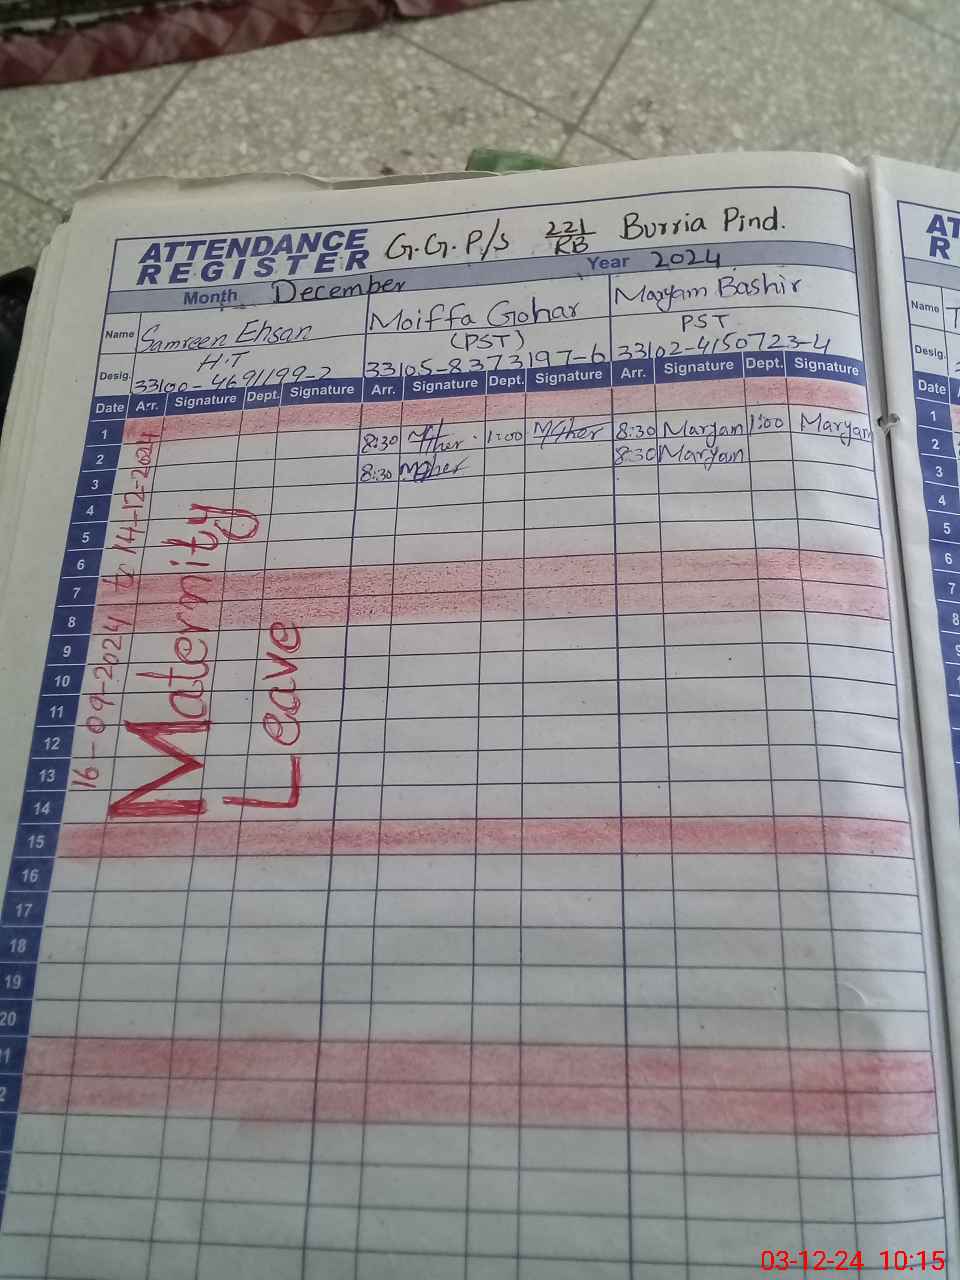 ATTENDANCE REGISTER G.G.P/S 221/RB Burria Pind.
Month December Year 2024
Name Samreen Ehsan Moiffa Gohar Maryam Bashir
Desig. H.T (PST) PST
33100-4691199-2 33105-8373197-6 33102-4150723-4
Date Arr. Signature Dept. Signature Arr. Signature Dept. Signature Arr. Signature Dept. Signature
1
2 8:30 1:00 8:30 Maryam 1:00 Maryam
3 8:30 8:30 Maryam
4
5
6
7
8
9
10
11
12
13
14
15
16
17
18
19
20
1
2
16-09-2024 to 14-12-2024
Maternity
Leave
AT
R
Name T
Desig.
Date
1
2
3
4
5
6
7
8
03-12-24 10:15